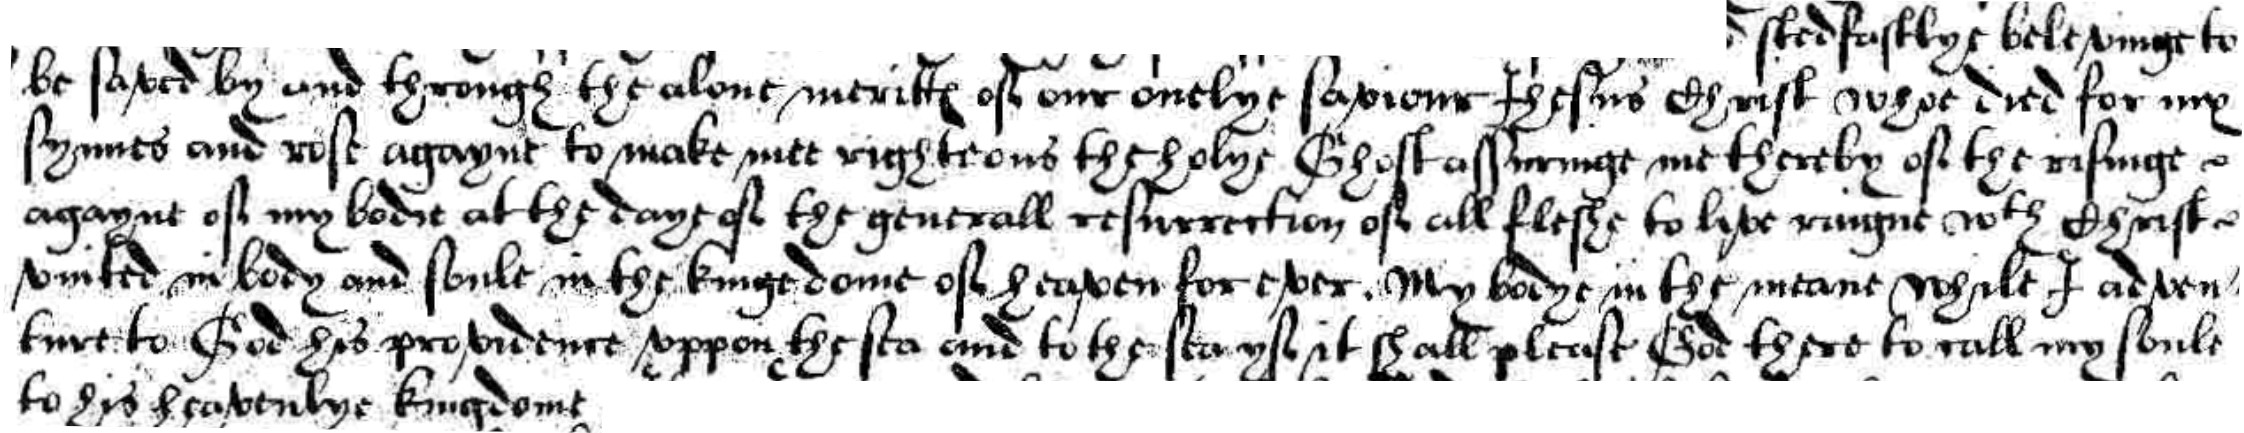 stedfastlye belevinge to
be saved by and through the alone merittes of our onelye saviour Jhesus Christ whoe died for my
synnes and rose agayne to make mee righteous the holye Ghost assuringe me thereby of the risinge
agayne of my bodie at the daye of the generall resurrection of all fleshe to live raigne wth Christ
vnited in body and soule in the kingedome of heaven for ever. My bodye in the meane while I adven
ture to God his providence vppon the sea and to the sea yf it shall please God there to call my soule
to his heavenlye kingdome